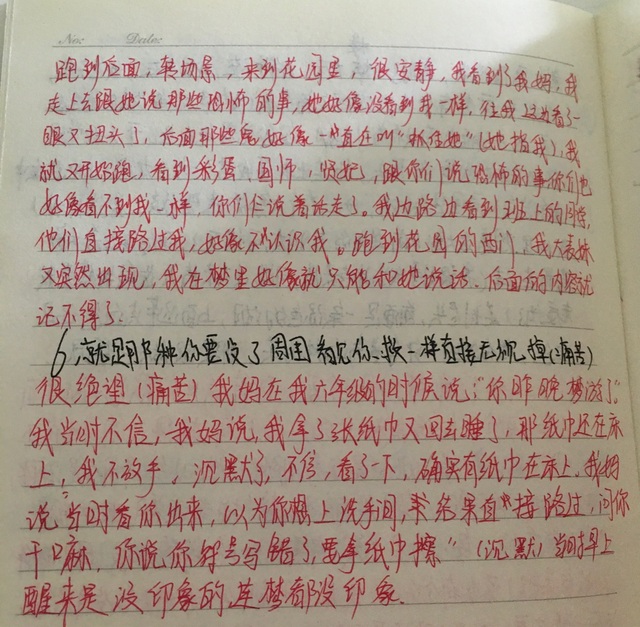 No: Date:
跑到后面，转场景，来到花园里，很安静，我看到了我妈，我
走上去跟她说那些恐怖的事，她好像没看到我一样，往我这边看了一
眼又扭头了，后面那些鬼好像一直在叫"抓住她"(她指我)，我
就又开始跑，看到彩蛋，国师，贤妃，跟你们说恐怖的事你们也
好像看不到我一样，你们说着话走了。我边路边看到班上的同学，
他们直接路过我，好像不认识我。跑到花园的西门，我大表妹
又突然出现，我在梦里好像就只能和她说话。后面的内容就
记不得了。
6、就是那种你要没了周围看见你、救一样直接无视掉(痛苦)
很绝望(痛苦)我妈在我六年级的时候说："你昨晚梦游了"
我当时不信，我妈说，我拿了张纸巾又回去睡了，那纸巾还在床
上，我不放手，沉默了，不信，看了一下，确实有纸巾在床上。我妈
说"当时看你出来，以为你想上洗手间，结果直接路过，问你
干嘛，你说你符号写错了，要拿纸巾擦"(沉默)当时早上
醒来是没印象的，连梦都没印象。